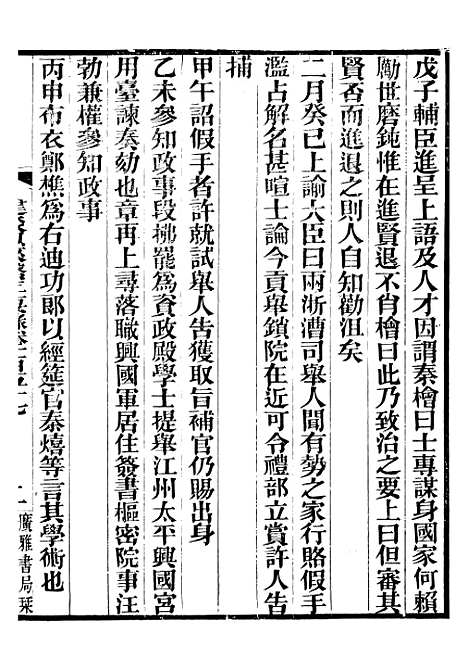 戊子輔臣進呈上語及人才因謂秦檜曰士專謀身國家何賴
勵世磨鈍惟在進賢退不肖檜曰此乃致治之要上曰但審其
賢否而進退之則人自知勸沮矣
二月癸巳上諭大臣曰兩浙漕司舉人聞有勢之家行賂假手
濫占解名甚喧士論今貢舉鎖院在近可令禮部立賞許人告
捕
甲午詔假手者許就試舉人告獲取旨補官仍賜出身
乙未參知政事段拂罷為資政殿學士提舉江州太平興國宮
用臺諫奏劾也章再上尋落職興國軍居住簽書樞密院事汪
勃兼權參知政事
丙申布衣鄭樵為右迪功郎以經筵官秦熺等言其學術也
廣雅書局栞